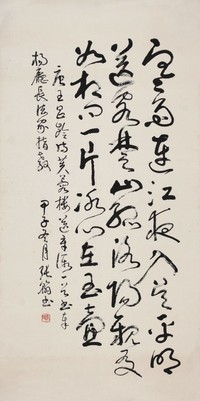 寒雨連江夜入吳平明
送客楚山孤洛陽親友
如相問一片冰心在玉壺
唐王昌齡詩芙蓉樓送辛漸一首書奉
楊廳長法家指教
甲子冬月張書